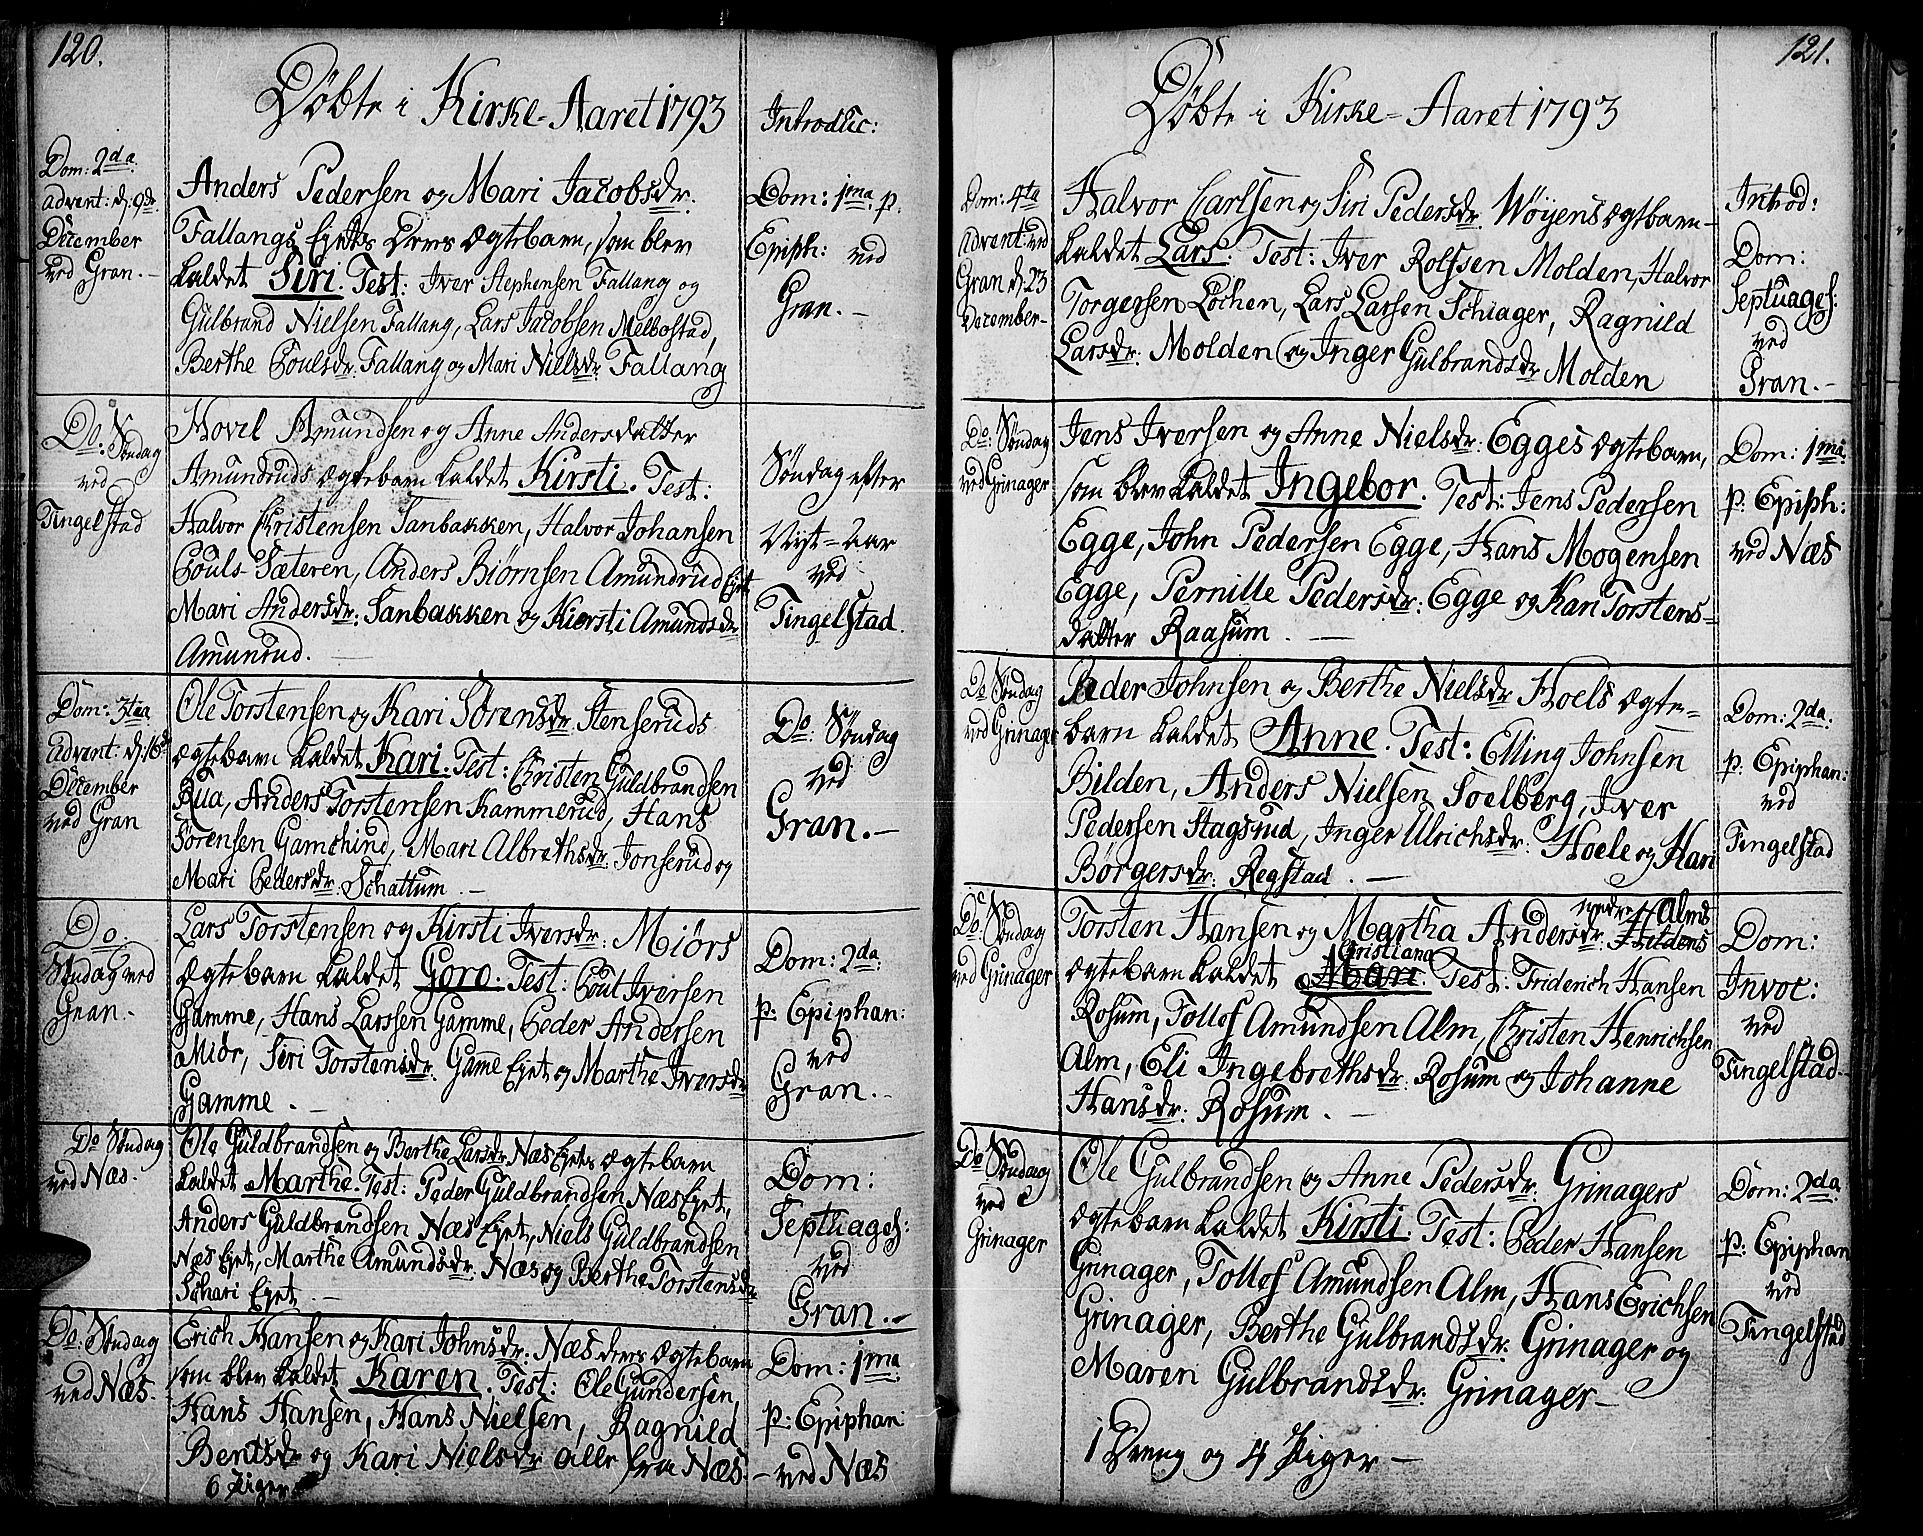 120.
Döbte i Kirke-Aaret 1793
Introduc:
Dom: 2da
advent: d: 9de
December
ved Gran.-
Anders Pedersen og Mari Jacobsdr.
Fallangs Eyets deres Ægtebarn, som blev
kaldet Siri. Test: Iver Stephensen Fallang og
Gulbrand Nielsen Fallang, Lars Jacobsen Melbostad,
Berthe Poulsdr. Fallang og Mari Nielsdr Fallang
Dom: 1ma p.
Epiph: ved
Gran.-
Do. Søndag
ved
Tingelstad
Hovel Amundsen og Anne Andersdatter
Amundruds Ægtebarn kaldet Kirsti. Test:
Halvor Christensen Sanbakken, Halvor Johansen
Pouls-Sæteren, Anders Biørnsen Amundrud Eyet
Mari Andersdr: Sanbakken og Kiersti Amundsdr
Amunrud.
Søndag efter
Nyt-Aar
ved
Tingelstad.
Dom: 3tia
Advent: d: 16de
December
ved Gran
Ole Torstensen og Kari Sörensdr. Stenseruds
Ægtebarn kaldet Kari. Test: Christen Guldbrandsen
Rua, Anders Torstensen Kammerud, Hans
Sörensen Gamchind, Mari Albrethsdr. Jonserud og
Mari Pedersdr. Schattum.-
Do: Søndag
ved
Gran.-
Do.
Søndag ved
Gran.
Lars Torstensen og Kirsti Iversdr: Miörs
Ægtebarn kaldet Goro. Test: Poul Iversen
Gamme, Hans Larssen Gamme, Peder Andersen
Miör, Siri Torstensdr. Game Eyet og Marthe Iversdr
Gamme.-
Dom: 2da
p: Epiphan:
ved
Gran.-
Do Søndag
ved Næs.
Ole Guldbrandsen og Berthe Larsdr Næs Eyets Ægtebarn
kaldet Marthe. Test: Peder Guldbrandsen Næs Eyet,
Anders Guldbrandsen Næs Eyet, Niels Guldbrandsen
Næs Eyet, Marthe Amundsdr. Næs og Berthe Torstensdr
Schari Eyet.-
Dom:
Septuages:
ved
Gran.-
Do: Søndag
ved Næs.
Erich Hansen og Kari Johnsdr: Næs deres Ægtebarn
som blev kaldet Karen. Test: Ole Gundersen,
Hans Hansen, Hans Nielsen, Ragnild
Berntsdr og Kari Nielsdr alle fra Næs.-
6 Piger
Dom: 1ma
p: Epiphan:
ved Næs
121.
Döbte i Kirke-Aaret 1793
Dom: 4ta
Advent: ved
Gran d: 23
December-
Halvor Carlsen og Siri Pedersdr. Wöyens Ægtebarn
kaldet Lars. Test: Iver Rolfsen Molden, Halvor
Torgersen Löchen, Lars Larsen Schiager, Ragnild
Larsdr. Molden og Inger Gulbrandsdr Molden
Introd:
Dom:
Septuages:
ved
Gran.-
Do: Søndag
ved Grinager
Jens Iversen og Anne Nielsdr: Egges Ægtebarn,
som blev kaldet Ingebor. Test: Jens Pedersen
Egge, John Pedersen Egge, Hans Mogensen
Egge, Pernille Pedersdr: Egge og Kari Torstens-
datter Raasum.-
Dom: 1ma
p: Epiph:
ved Næs
Do Søndag
ved Grinager
Peder Johnsen og Berthe Nielsdr Hoels Ægte-
barn kaldet Anne. Test: Elling Johnsen
Bilden, Anders Nielsen Soelberg, Iver
Pedersen Hagsrud, Inger Ulrichsdr: Hoele og Kari
Börgersdr: Regstad.-
Dom: 2da:
p: Epiphan:
ved
Tingelstad
Do: Søndag
ved Grinager
nedre Alms
Torsten Hansen og Martha Andersdr: Hildens
Cristiana
Ægtebarn kaldet Mari. Test: Friderich Hansen
Rosum, Tollof Amundsen Alm, Christen Henrichsen
Alm, Eli Ingebrethsdr: Rosum og Johanne
Hansdr: Rosum.-
Dom:
Invoc:
ved
Tingelstad.-
Do Søndag
ved
Grinager
Ole Gulbrandsen og Anne Pedersdr: Grinagers
Ægtebarn kaldet Kirsti. Test: Peder Hansen
Grinager, Tollof Amundsen Alm, Hans Erichsen
Grinager, Berthe Gulbrandsdr. Grinager og
Maren Gulbrandsdr: Grinager-
1 Dreng og 4 Piger-
Dom: 2da
p: Epiphan
ved
Tingelstad